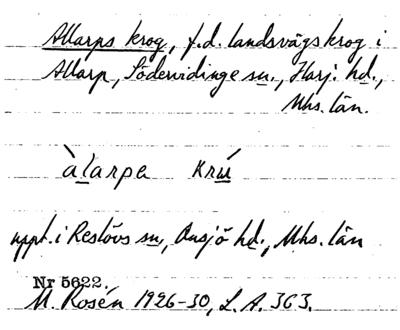 Allarps krog, f.d. landsvägskrog i
Allarp, Södervidinge sn., Harj. hd.,
Mhs. län.
àlarpa krú
uppt. i Reslövs sn, Onsjö hd., Mhs. län
Nr 5622.
M. Rosén 1926-30, L.A. 363.